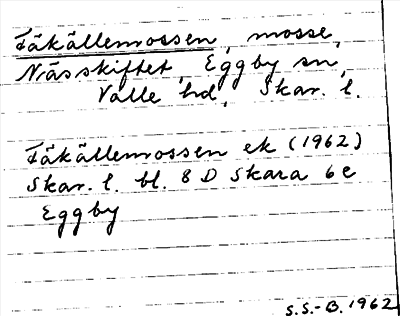 Fäkällemossen, mosse,
Nässkiftet, Eggby sn,
Valle hd, Skar. l.
Fäkällemossen ek (1962)
Skar. l. bl. 8 D Skara 6e
Eggby
S.S.-B. 1962